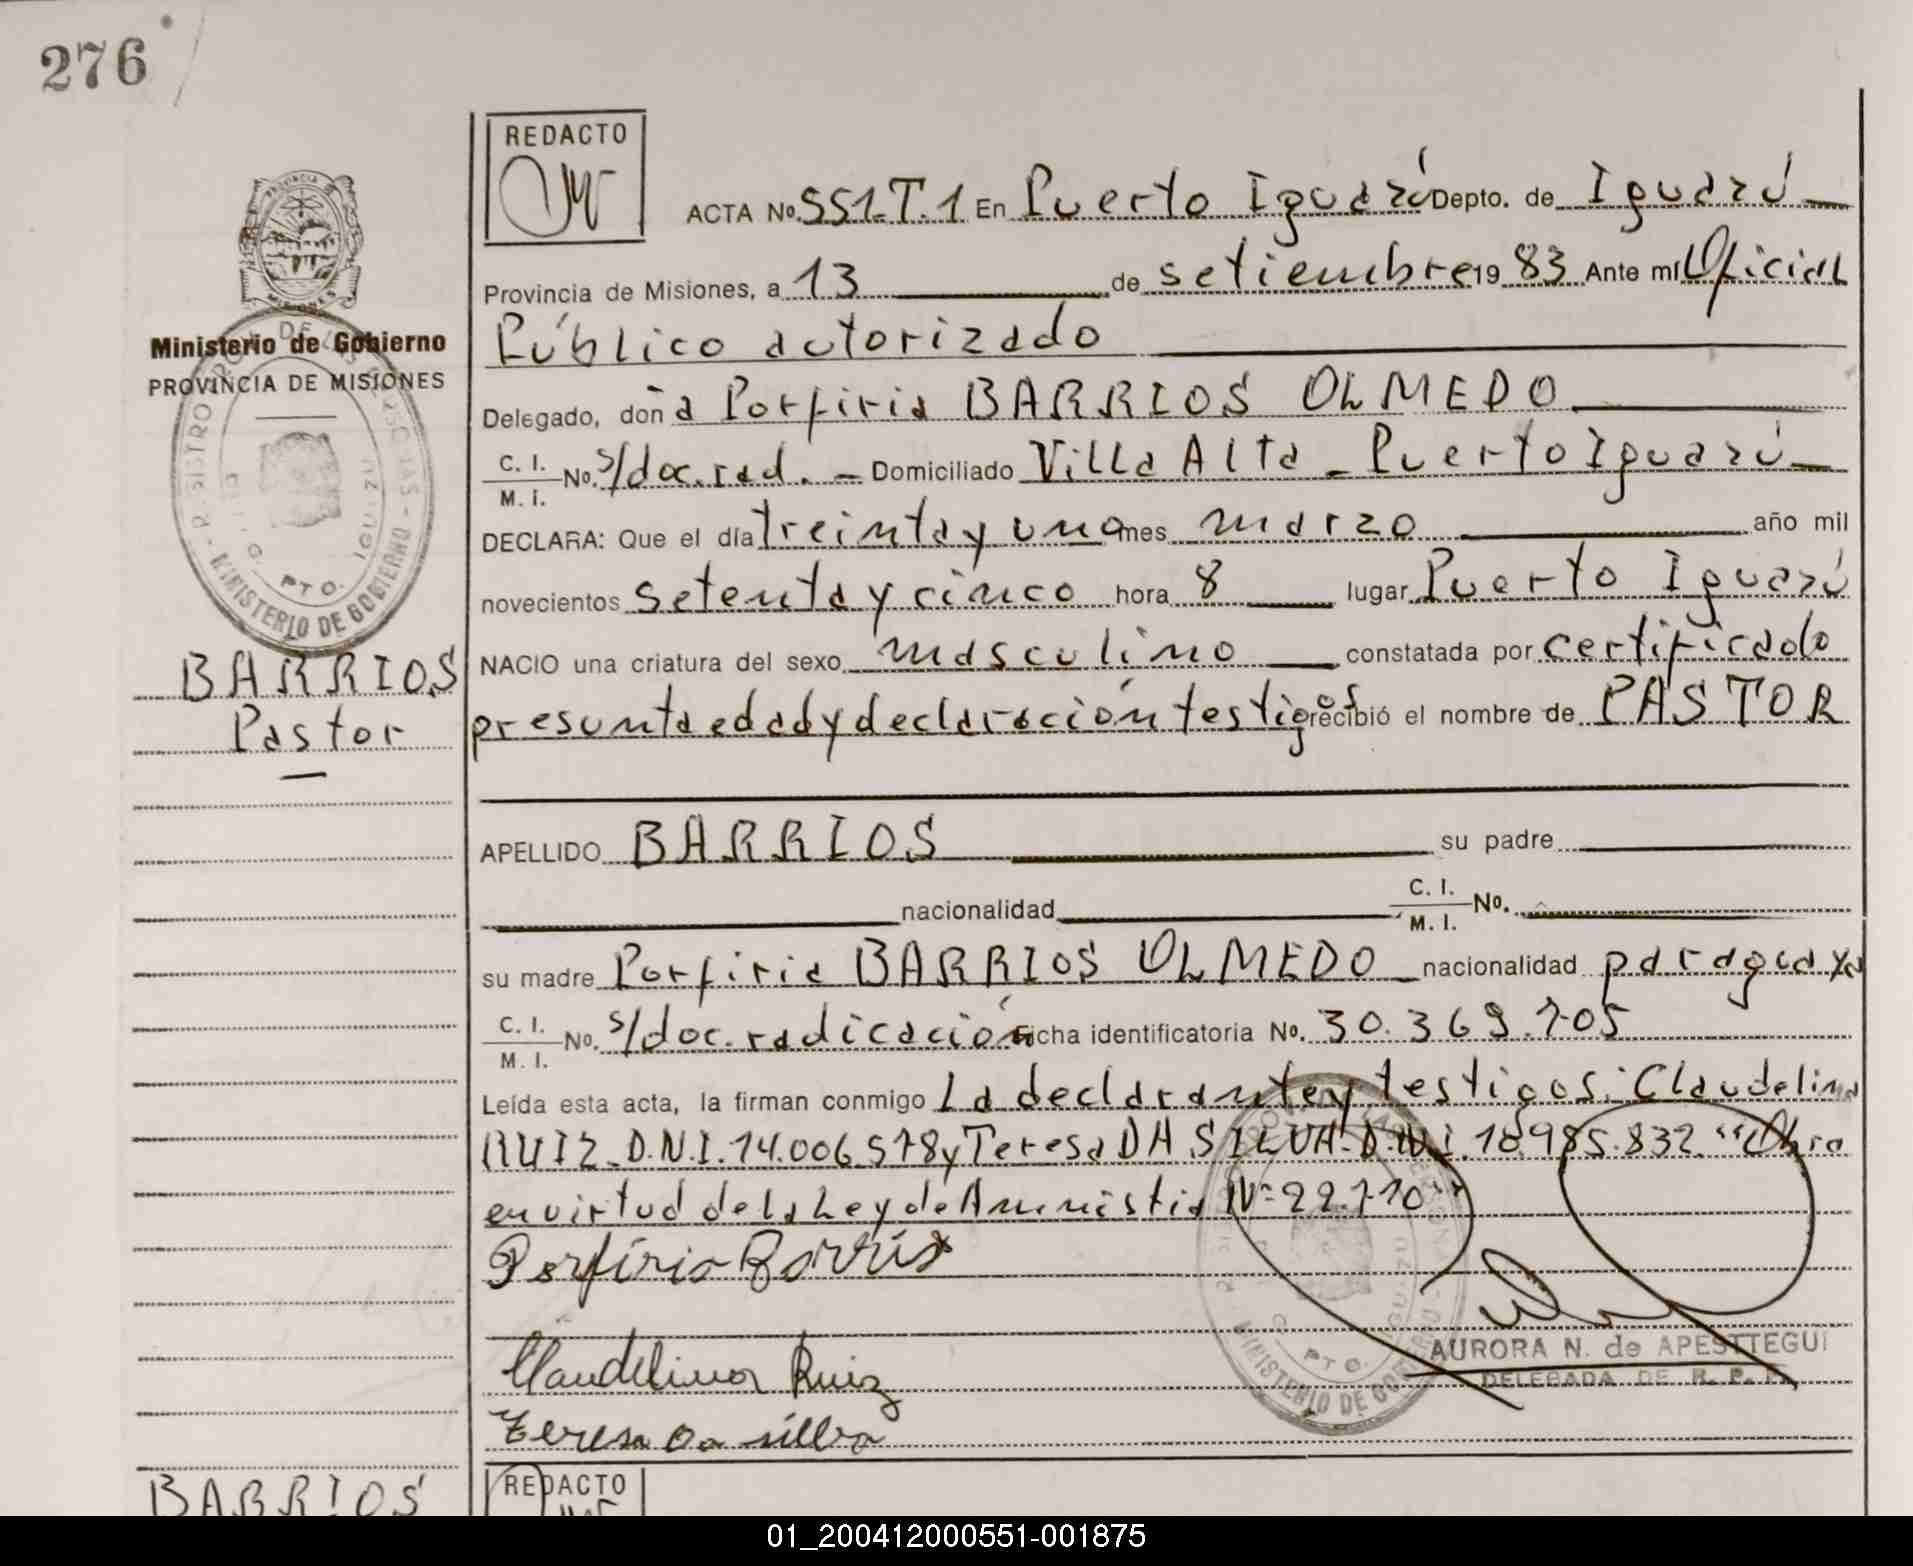 276
REDACTO
ACTA No. 551-T.1 En Puerto Iguazú Depto. de Iguazú
Provincia de Misiones, a 13 de setiembre 19 83 Ante mí Oficial
Público autorizado
Ministerio de Gobierno
PROVINCIA DE MISIONES
Delegado, don a Porfiria BARRIOS OLMEDO
C. I. / M. I. No. s/doc.rad. - Domiciliado Villa Alta - Puerto Iguazú
DECLARA: Que el día treinta y uno mes marzo año mil
novecientos setenta y cinco hora 8 lugar Puerto Iguazú
NACIO una criatura del sexo masculino constatada por certificado
BARRIOS
Pastor
presunta edad y declaración testigos recibió el nombre de PASTOR
APELLIDO BARRIOS su padre
nacionalidad C. I. / M. I. No.
su madre Porfiria BARRIOS OLMEDO nacionalidad paraguaya
C. I. / M. I. No. s/doc. radicación Ficha identificatoria No. 30.369.705
Leída esta acta, la firman conmigo La declarante y testigos: Claudelina
RUIZ D.N.I. 14.006.578 y Teresa DA SILVA D.N.I. 18.985.832 "Obra
en virtud de la Ley de Amnistia Nº 22.770"
Porfiria Barrios
Claudelina Ruiz
Teresa Da silva
AURORA N. de APESTTEGUI
DELEGADA DE R. P.
MINISTERIO DE GOBIERNO
PTO. IGUAZU
BARRIOS
REDACTO
01_200412000551-001875